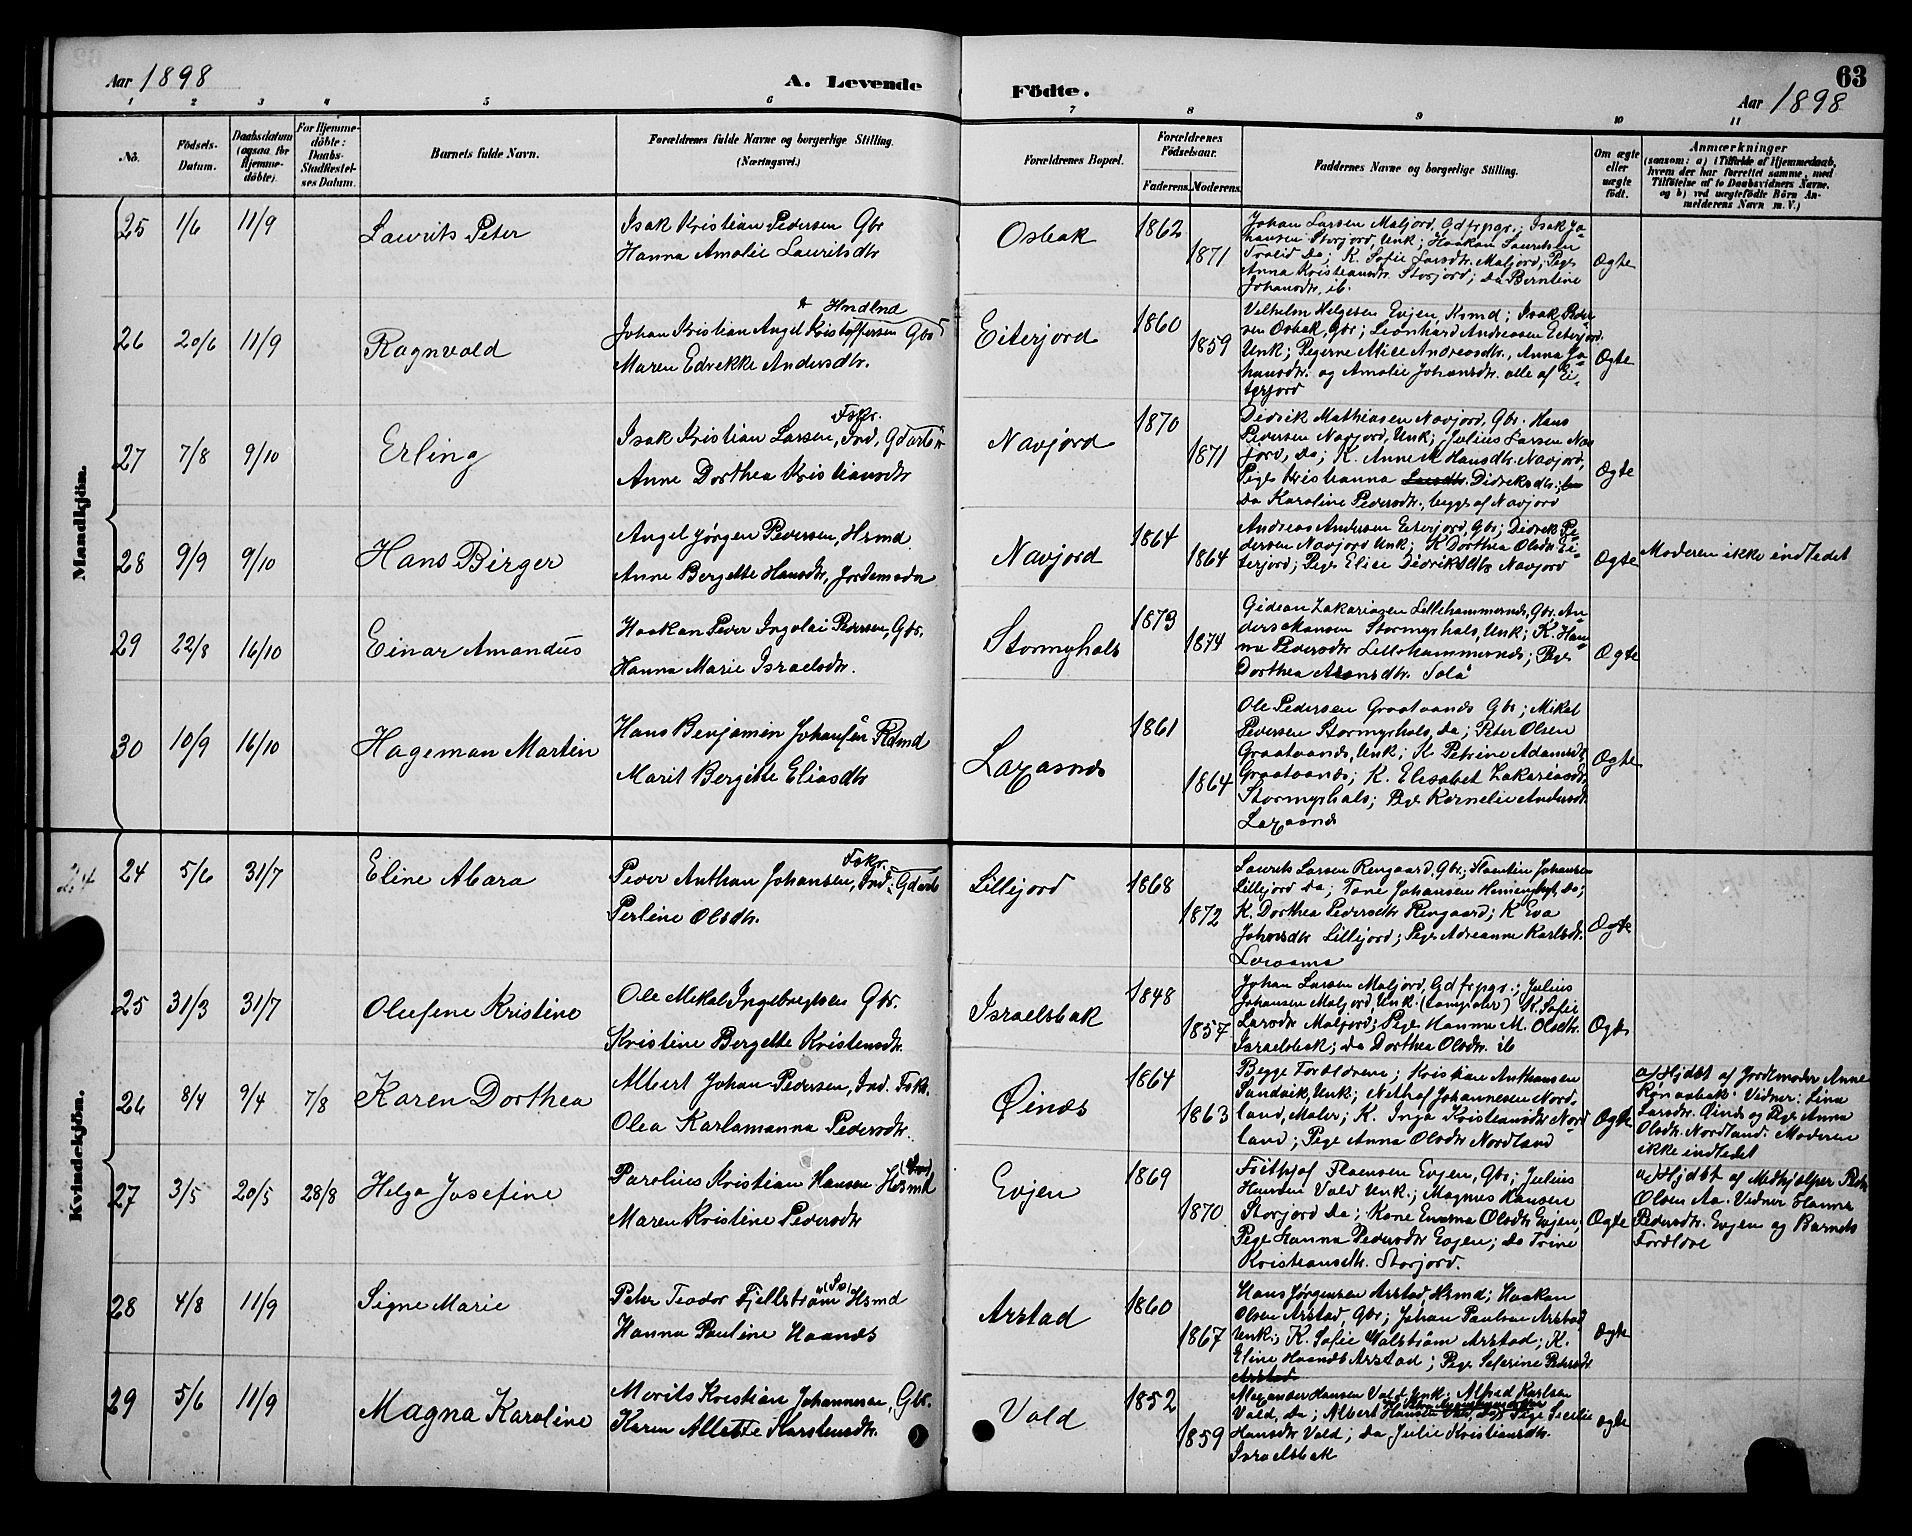 Aar 1898
A. Levende
Födte.
63
Aar 1898
1 2 3 4 5 6 7 8 9 10 11
No.
Födsels-
Datum.
Daabsdatum
(ogsaa for
Hjemme-
döbte).
For Hjemme-
döbte:
Daabs-
Stadfæstel-
ses Datum.
Barnets fulde Navn.
Forældrenes fulde Navne og borgerlige Stilling.
(Næringsvei.)
Forældrenes Bopæl.
Forældrenes
Födselsaar.
Faderens. Moderens.
Faddernes Navne og borgerlige Stilling.
Om ægte
eller
uægte
født.
Anmærkninger
(saasom: a) i Tilfælde af Hjemmedaab,
hvem der har forrettet samme, med
Tilföielse af to Daabsvidners Navne,
og b) ved uægtefödte Börn An-
melderens Navn m. V.)
Mandkjön.
25 1/6 11/9
Laurits Peter
Isak Kristian Pedersen Gbr
Hanna Amalie Lauritsdtr
Osbak
1862
1871
Johan Larsen Maljord, Gdfrpgr.; Isak Jo-
hansen Storjord, Unk; Haakon Lauritsen
Trolid, Do; K. Sofie Larsdtr. Maljord; Pige
Anna Kristiansdtr. Storjord; do Berntine
Johansdtr, ib.
Ægte
26 20/6 11/9
Ragnvald
& Hndlnd
Johan Kristian Angel Kristoffersen Gbr
Maren Edrekke Andersdtr.
Eiterjord
1860
1859
Vilhelm Helgesen Evjen Hsmd; Isak Peder-
sen Osbak, Gbr; Leonhard Andreasen Eiterjord
Unk; Pigerne Alice Andreasdtr., Anna Jo-
hansdtr. og Amalie Johansdtr. alle af Ei-
terjord
Ægte
27 7/8 9/10
Erling
Fskr.
Isak Kristian Larsen, Ind, Gdarb
Anne Dorthea Kristiansdtr
Navjord
1870
1871
Didrik Mathiasen Navjord, Gbr. Hans
Pedersen Navjord, Unk; Julius Larsen Nav
jord, do; K. Anne M Hansdtr. Navjord,
Pige Kristianna Larsdtr. Didriksdtr;
do Karoline Pedersdtr. begge af Navjord
Ægte
28 9/9 9/10
Hans Birger
Angel Jørgen Pedersen, Hsmd
Anne Bergitte Hansdtr, Jordemodr
Navjord
1864
1864
Andreas Andersen Eiterjord, Gbr; Didrik Pe-
dersen Navjord Unk; K Dorthea Olsdtr Ei-
terjord; Pige Elise Didriksdtr Navjord
Ægte
Moderen ikke indledet
29 22/8 16/10
Einar Amandus
Haakon Peder Ingolai Pedersen, Gbr.
Hanna Marie Israelsdtr.
Stormyhals
1873
1874
Gidean Zakariasen Lillehammernes, Gbr. An-
ders Hansen Stormyhals, Unk; K. Han-
na Pedersdtr Lillehammernes; Pige
Dorthea Aronsdtr. Solå
Ægte
30 10/9 16/10
Hageman Martin
Hans Benjamin Johansen Rdmd
Marit Bergitte Eliasdtr
Laxaanes
1861
1864
Ole Pedersen Graatvands Gbr; Mikal
Pedersen Stormyhals, do; Peter Olsen
Graatvands, Unk; K Petrine Adamsdt
Graatvands; K. Elisabet Zakariasdt
Stormyhals; Pige Kornelie Andersdt
Laxaanes
Ægte
24
Kvindekjön.
24 5/6 31/7
Eline Abara
Fskr.
Peder Anthon Johansen, Ind; Gdarb
Perline Olsdtr.
Lillejord
1868
1872
Laurits Larsen Rengaard, Gbr; Hartin Johansen
Lillejord do; Tone Johansen Hemingbyt, do;
K. Dorthea Pedersdtr Rengaard; K Eva
Johnsdtr Lillejord; Pige Adrianne Karlsdt.
Ægte
25 31/3 31/7
Olufine Kristine
Ole Mikal Ingebregtsen Gbr.
Kristine Bergitte Kristensdtr.
Israelsbak
1848
1857
Johan Larsen Maljord, Gdfrpgr.; Julius
Johansen Maljord, Unk. K. Sofie
Larsdtr Maljord; Pige Hanna M. Olsdtr.
Israelsbak; do Dorthea Olsdtr. ib
Ægte
26 8/4 9/4 7/8
Karen Dorthea
Albert Johan Pedersen, Ind. Fskr.
Olea Karlamanna Pedersdtr.
Øines
1864
1863
Begge Forældrene; Kristian Anthonsen
Sandvik, Unk; Nethof Johannesen Nord-
land, Maler; K. Inga Kristiansdtr Nord
land; Pige Anna Olsdtr Nordland
Ægte
a/Hjdbt af Jordemoder Anne
Rønaabak. Vidner: Lina
Larsdtr. Øines og Pige Anna
Olsdtr. Nordland. Moderen
ikke indledet
27 3/5 20/5 28/8
Helga Josefine
Parolius Kristian Hansen Hsmd
Maren Kristine Pedersdtr
Evjen
1869
1870
Frithjof Floensen Evjen, Gbr; Julius
Hansen Vold Unk.; Magnus Hansen
Storjord do; Kone Emma Olsdtr Evjen;
Pige Hanna Pedersdtr Evjen; do Trine
Kristiansdtr. Storjord.
Ægte
a/Hjdbt af Medhjælper Peder
Olsen Aa. Vidner Hanna
Pedersdtr. Evjen og Barnets
Forældre
28 4/8 11/9
Signe Marie
Peter Teodor Fjellström Hsmd
Hanna Pauline Haanes
Arstad
1860
1867
Hans Jørgensen Arstad Hsmd; Haakon
Olsen Arstad, Gbr; Johan Paulsen Arstad
Unk; K. Sofie Walström Arstad; K.
Eline Haanes Arstad; Pige Seferine Pedersdt
Arstad
Ægte
29 5/6 11/9
Magna Karoline
Morits Kristian Johannesen, Gbr.
Karen Alette Karstensdtr.
Vold
1852
1859
Alexander Hansen Vold Unk; Alfred Karlsen
Vold, do; Albert Hansen Pige Sicilie
Hansdtr Vold; do Julie Kristiansdtr.
Israelsbak
Ægte